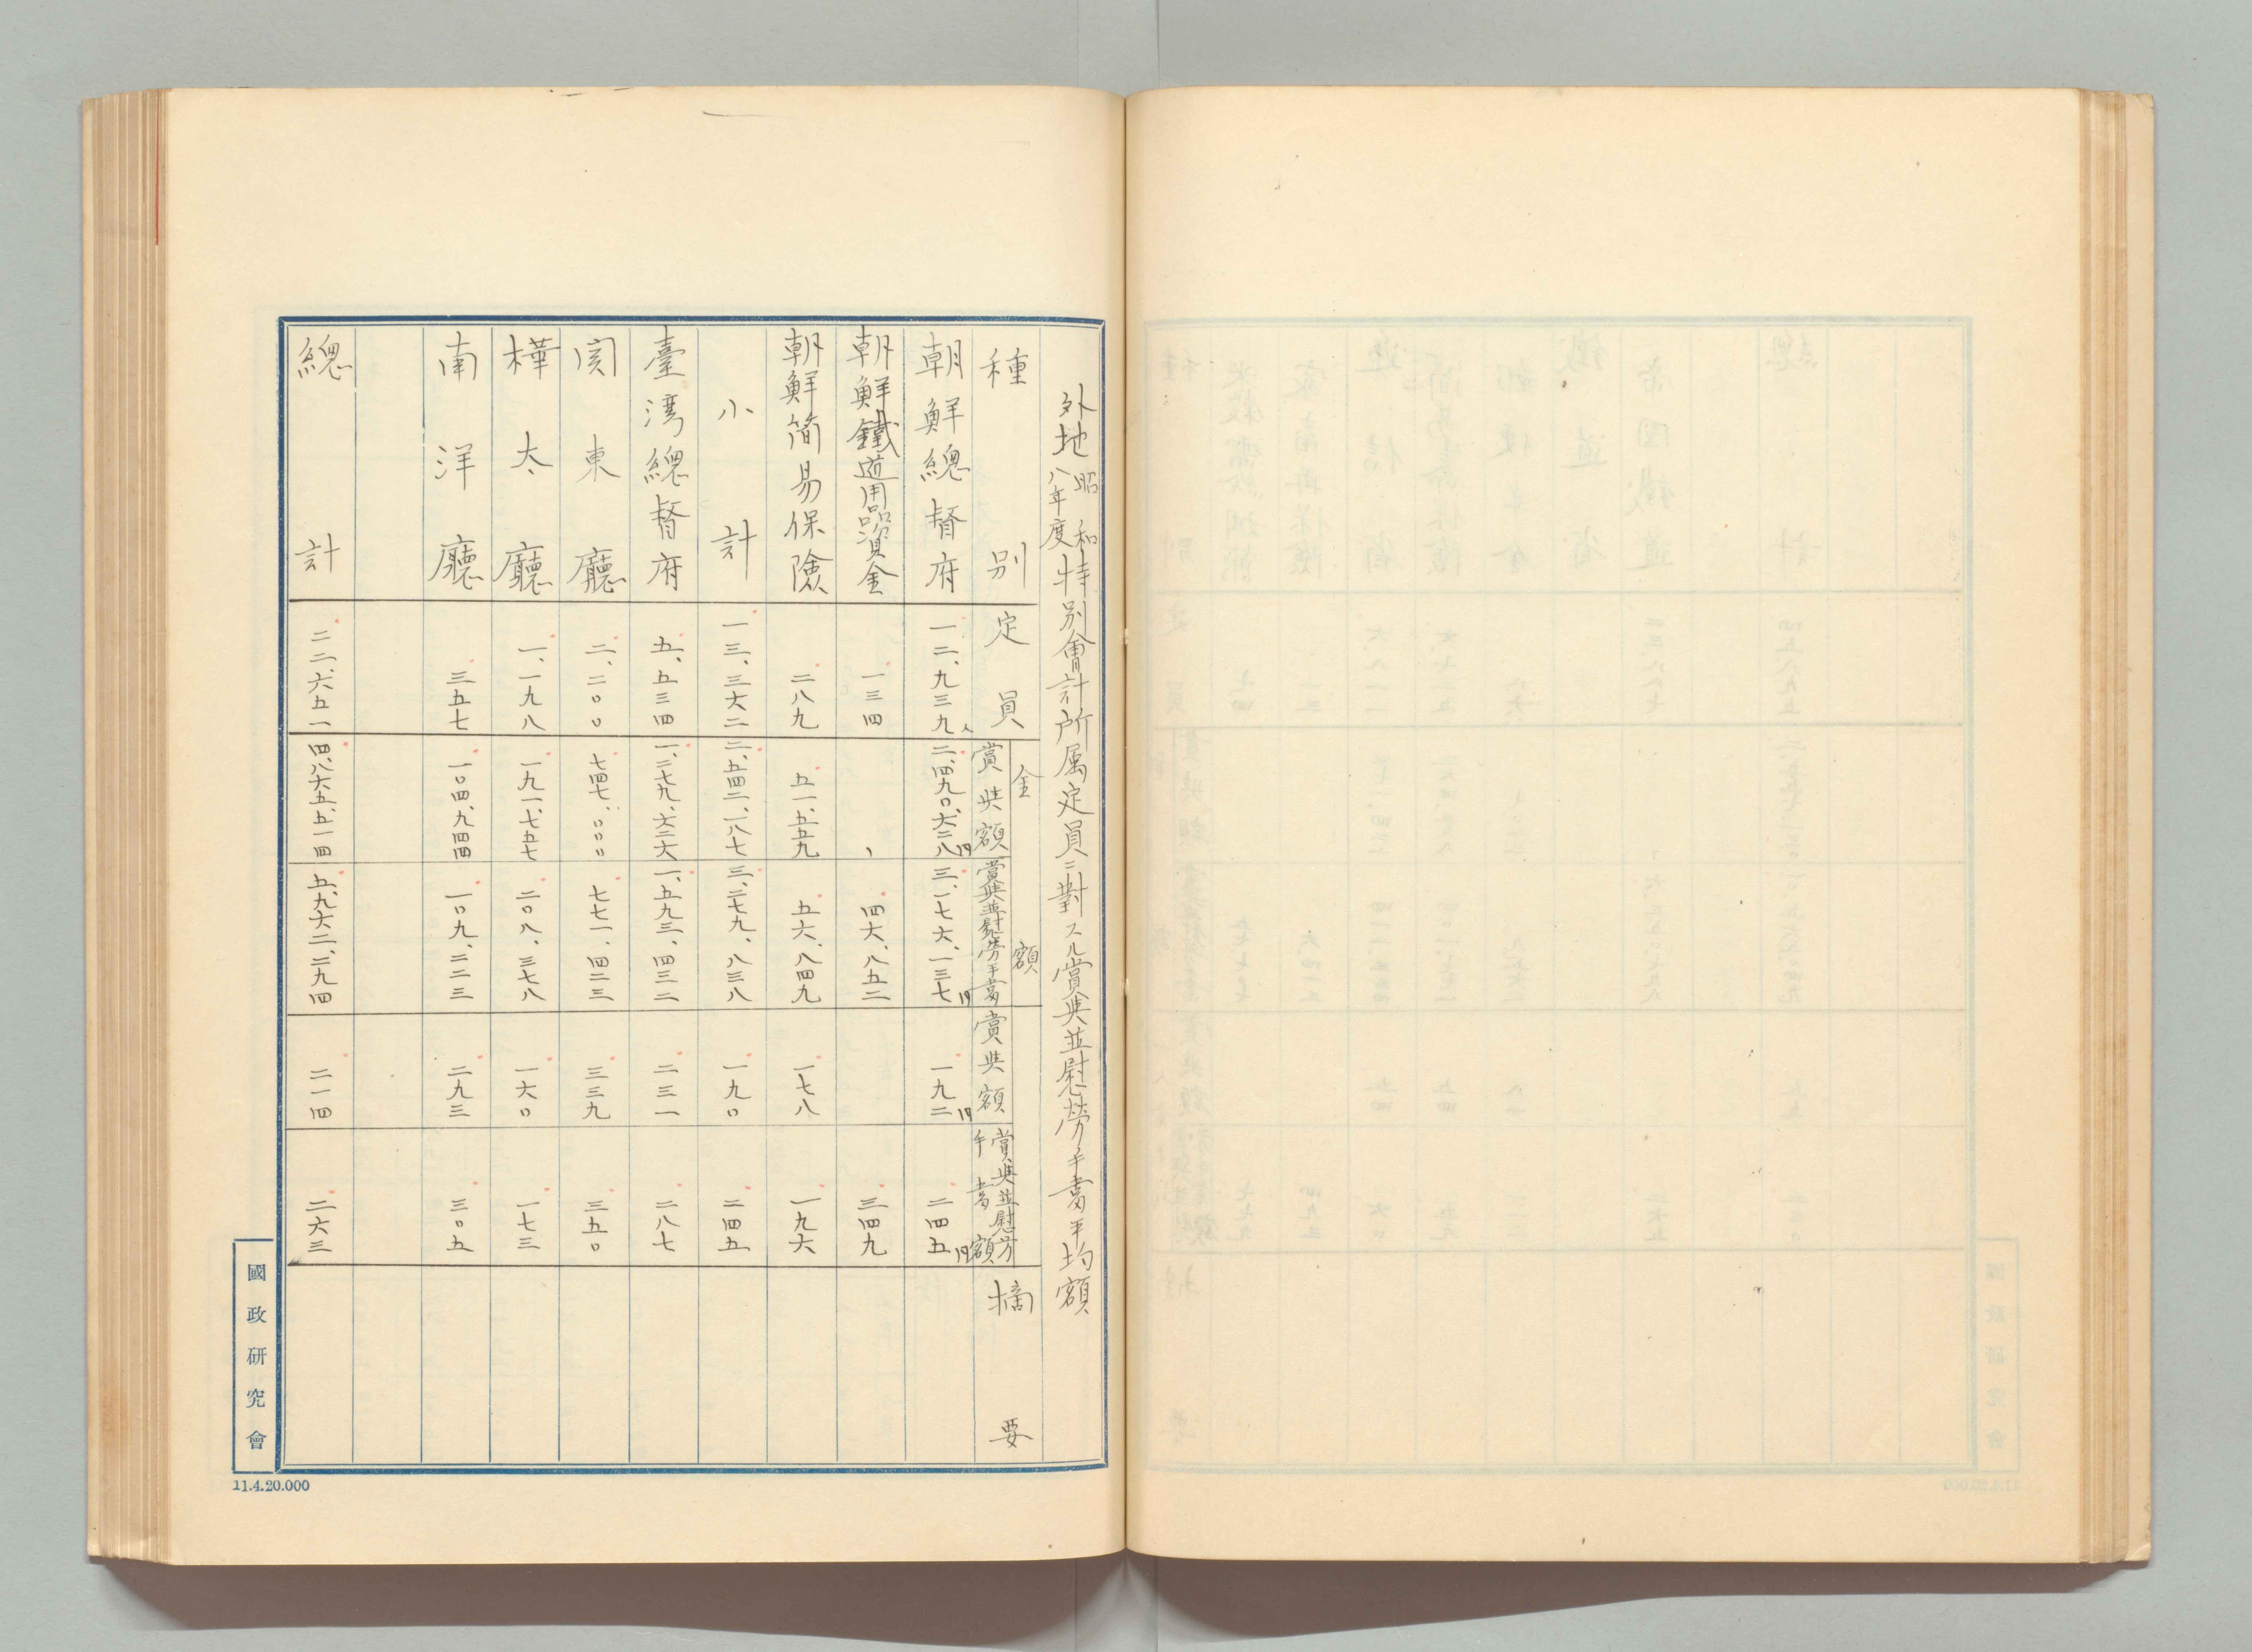 外地昭和八年度特別會計所属定員ニ對スル賞與並慰勞手當平均額
種別 定員 金額 賞與額 賞與並慰勞手當 賞與額 賞與並慰労手當額 摘要
朝鮮總督府 一二、九三九人 二、四九〇、六二八円 三、一七六、一三七円 一九二円 二四五円
朝鮮鐵道用品資金 一三四 、 四六、八五二 三四九
朝鮮簡易保険 二八九 五一、五五九 五六、八四九 一七八 一九六
小計 一三、三六二 二、五四二、一八七 三、二七九、八三八 一九〇 二四五
臺湾總督府 五、五三四 一、二七九、六二六 一、五九三、四三二 二三一 二八七
関東廳 二、二〇〇 七四七、〇〇〇 七七一、四二三 三三九 三五〇
樺太廳 一、一九八 一九一、七五七 二〇八、三七八 一六〇 一七三
南洋廳 三五七 一〇四、九四四 一〇九、二二三 二九三 三〇五
總計 二二、六五一 四、八六五、五一四 五、九六二、二九四 二一四 二六三
國政研究會
11.4.20.000